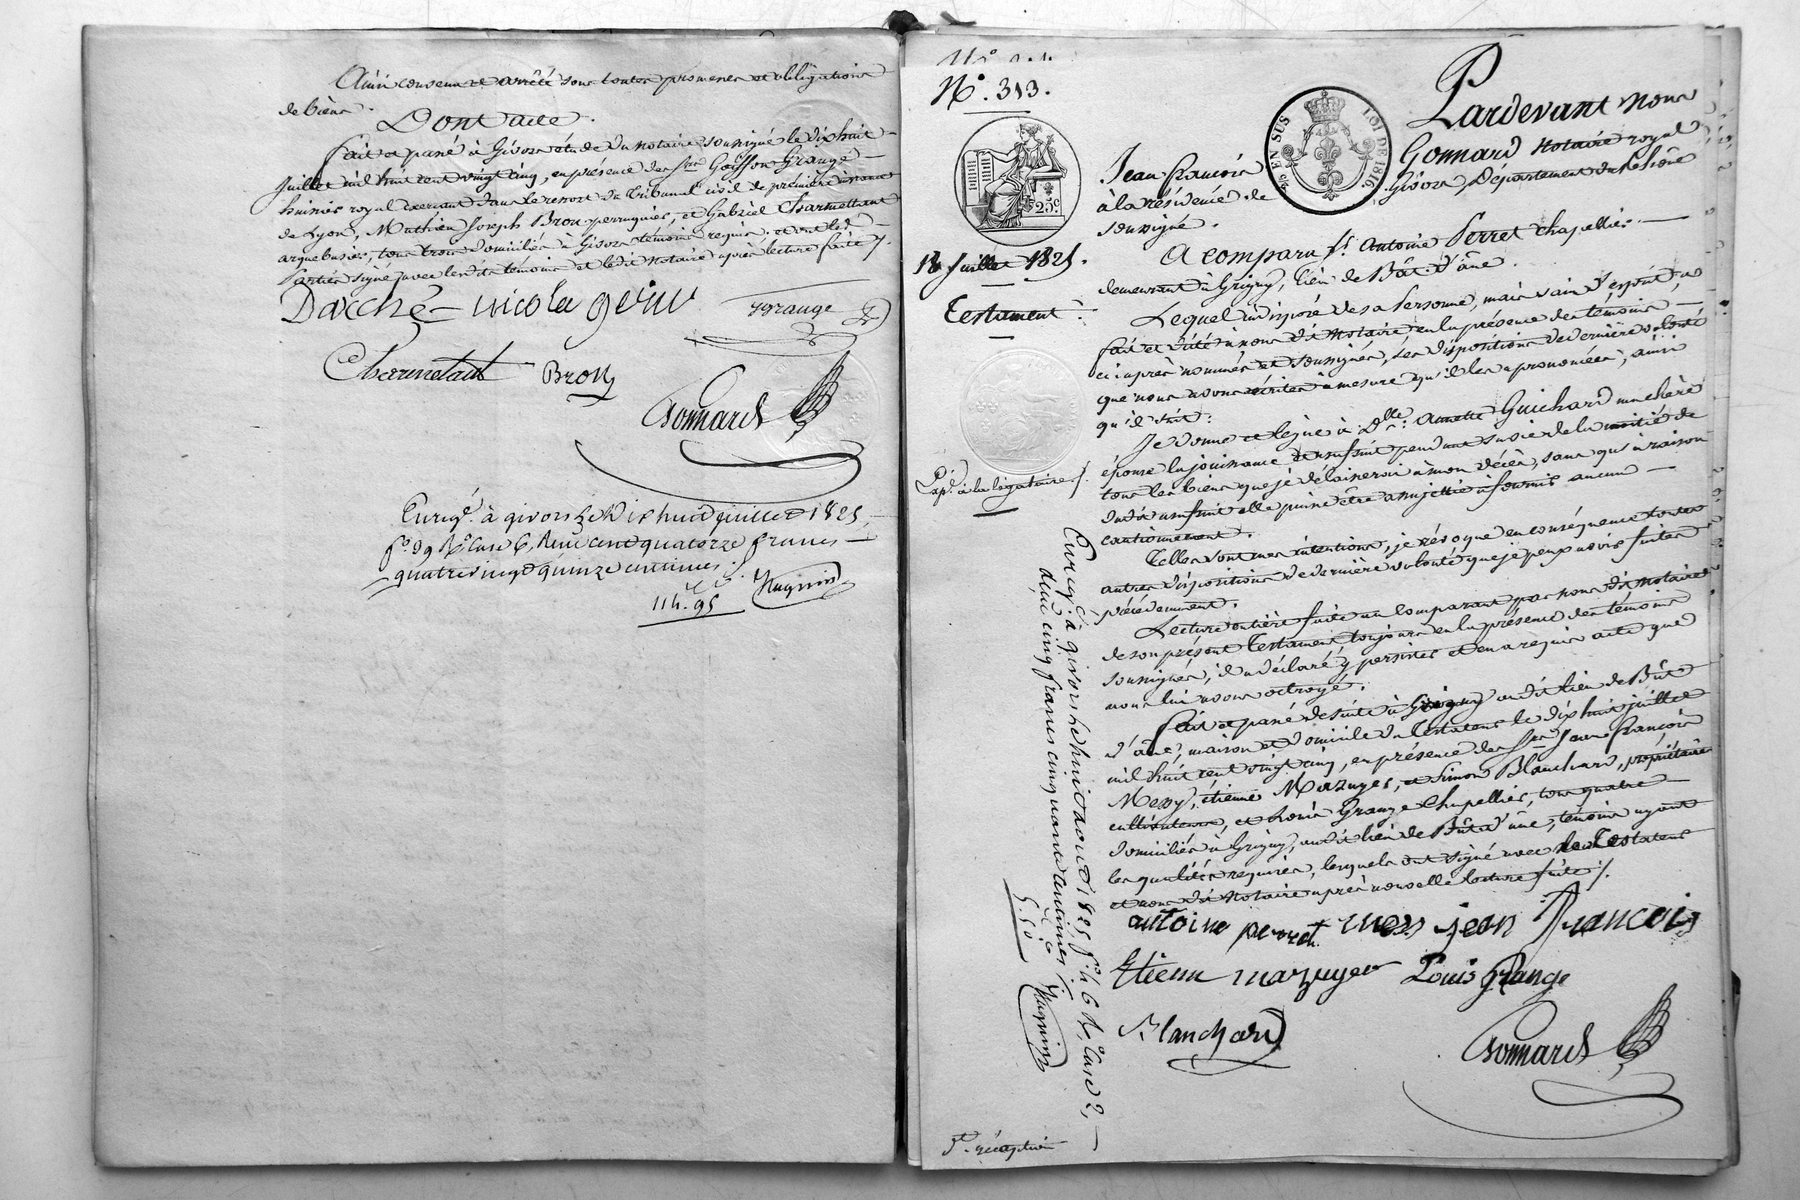 Ainsi convenu et arrêté sous toutes promesses et obligations
de biens.
Dont acte.
fait et passé à Givors étude du notaire soussigné le dix huit
Juillet mil huit cent vingt cinq, en présence des Srs Goiffon Grange
huissier royal exerçant dans le ressort du Tribunal civil de première instance
de Lyon, Mathieu Joseph Bron perruquier, et Gabriel Charmettant
arquebusier, tous trois domiciliés à Givors témoins requis et ont les
Parties signé avec lesdits témoins et ledit Notaire après lecture faite ./.
Daiché nicola gérin Grange
Charmetant Bron
Gonnard
Enregé. à givors le dix huit juillet 1825,
fo. 99 Ro. Case 6, Reçu cent quatorze francs
quatrevingt quinze centimes ./.
114. 95 Hugnin
No. 313.
EN SUS
LOI DE 1816
25c
18 Juillet 1825.
Testament.
Exp. à la légataire ./.
Pardevant nous
Jean françois Gonnard Notaire royal
à la résidence de Givors Département du Rhône
soussigné.
A comparu Sr. Antoine Perret chapellier
demeurant à Grigny, lieu de Bât-d'âne.
Lequel indisposé de sa Personne, mais sain d'esprit, a
fait et dicté à nous dit Notaire en la présence des témoins
ci après nommés et soussignés, ses dispositions de dernière volonté
que nous avons écrites à mesure qu'il les a prononcées, ainsi
qu'il suit:
Je donne et lègue à Dlle. Annette Guichard ma chère
épouse la jouissance et usufruit pendant sa vie de la moitié de
tous les biens que je délaisserai à mon décès, sans qu'à raison
dudit usufruit elle puisse être assujettie à fournir aucun
cautionnement.
Telles sont mes intentions, je révoque en conséquence toutes
autres dispositions de dernière volonté que je peux avoir faites
précédemment.
Lecture entière faite au comparant par nous dit Notaire
de son présent Testament, toujours en la présence des témoins
soussignés, il a déclaré y persister et en a requis acte que
nous lui avons octroyé.
fait et passé de suite à Grigny au dit lieu de Bât
d'âne, maison et domicile du Testateur le dix huit juillet
mil huit cent vingt cinq, en présence des Srs Jean françois
Mezy, étienne Mazuyer, et Simon Blanchard, propriétaires
cultivateurs, et Louis Grange chapellier, tous quatre
domiciliés à Grigny, audit lieu de Bât d'âne, témoins ayant
les qualités requises, lesquels ont signé avec le Testateur
et nous dit Notaire après nouvelle lecture faite ./.
antoine perret mezy jean François
Etienne mazuyer Louis Grange
Blanchard
Gonnard
Enregé. à givors le huit aout 1825 fo. 46 Ro. Case 2,
reçu cinq francs cinquante centimes ./.
5. 50 Hugnin